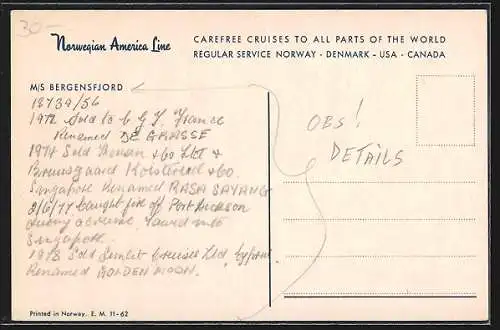 30-
Norwegian America Line
CAREFREE CRUISES TO ALL PARTS OF THE WORLD
REGULAR SERVICE NORWAY - DENMARK - USA - CANADA
M/S BERGENSFJORD
18739/56
1972 Sold to C G T, France
Renamed DE GRASSE
1974 Sold Thoresen & Co Ltd &
& Co.
Singapore Renamed RASA SAYANG
2/6/77 Caught fire off Port Dickson
during a cruise. Towed into
Singapore.
1978 Sold Sunlit Cruises Ltd, Cyprus.
Renamed GOLDEN MOON.
OBS!
DETAILS
Printed in Norway. E. M. 11-62